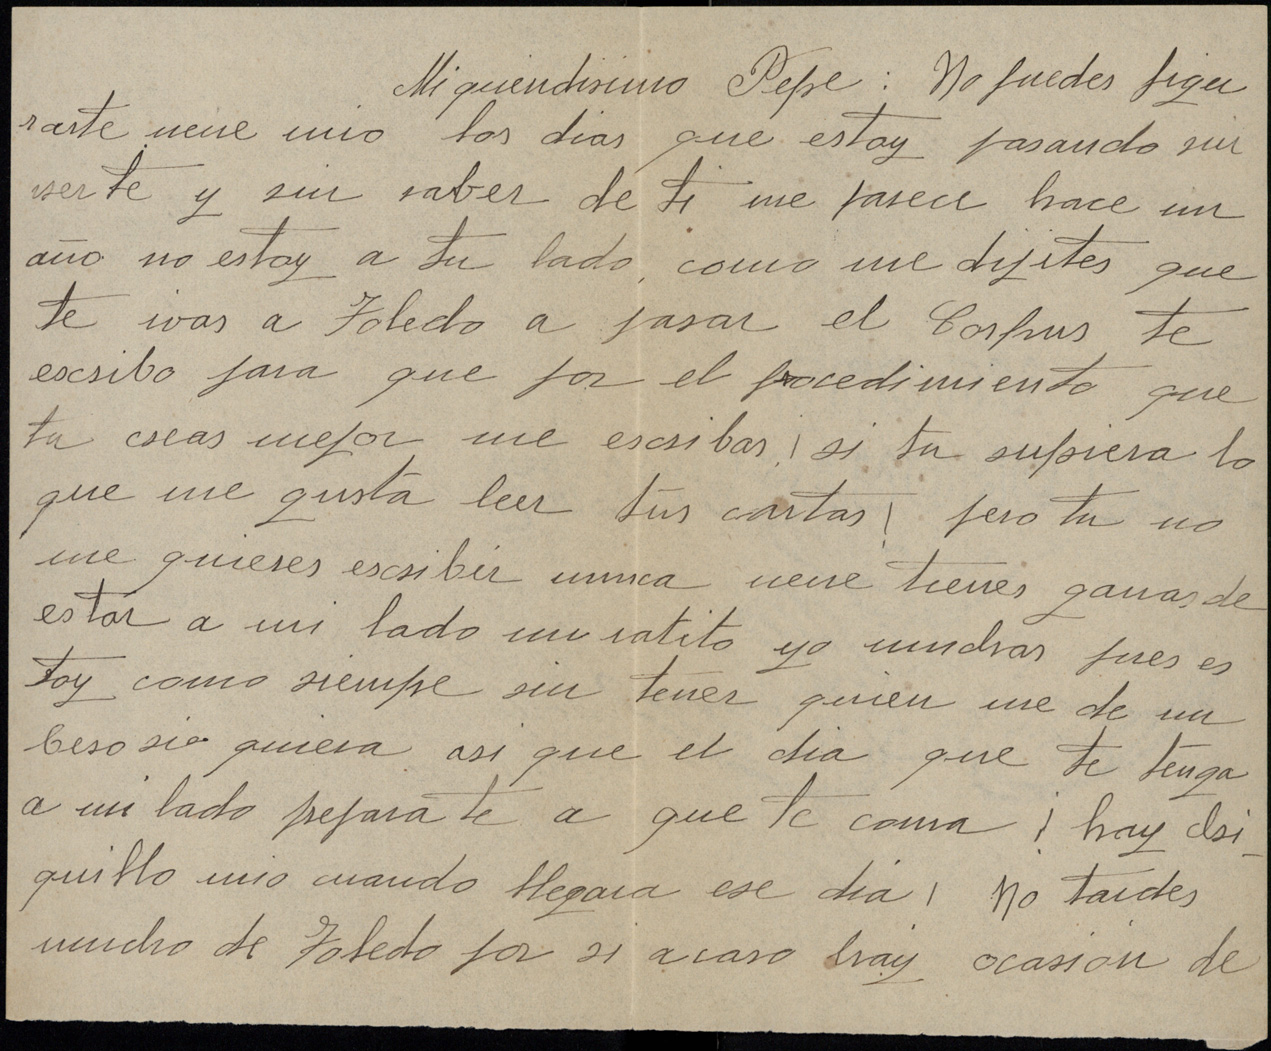 Mi queridisimo Pepe: No puedes figu
rarte nene mio los dias que estoy pasando sin
verte y sin saber de ti me parece hace un
año no estoy a tu lado, como me dijites que
te ivas a Toledo a pasar el Corpus te
escribo para que por el procedimiento que
tu creas mejor me escribas ¡si tu supiera lo
que me gusta leer tus cartas! pero tu no
me quieres escribir nunca nene tienes ganas de
estar a mi lado un ratito yo muchas pues es
toy como siempre sin tener quien me de un
beso si quiera asi que el dia que te tenga
a mi lado preparate a que te coma ¡hay chi-
quillo mio cuando llegara ese dia! No tardes
mucho de Toledo por si acaso hay ocasion de